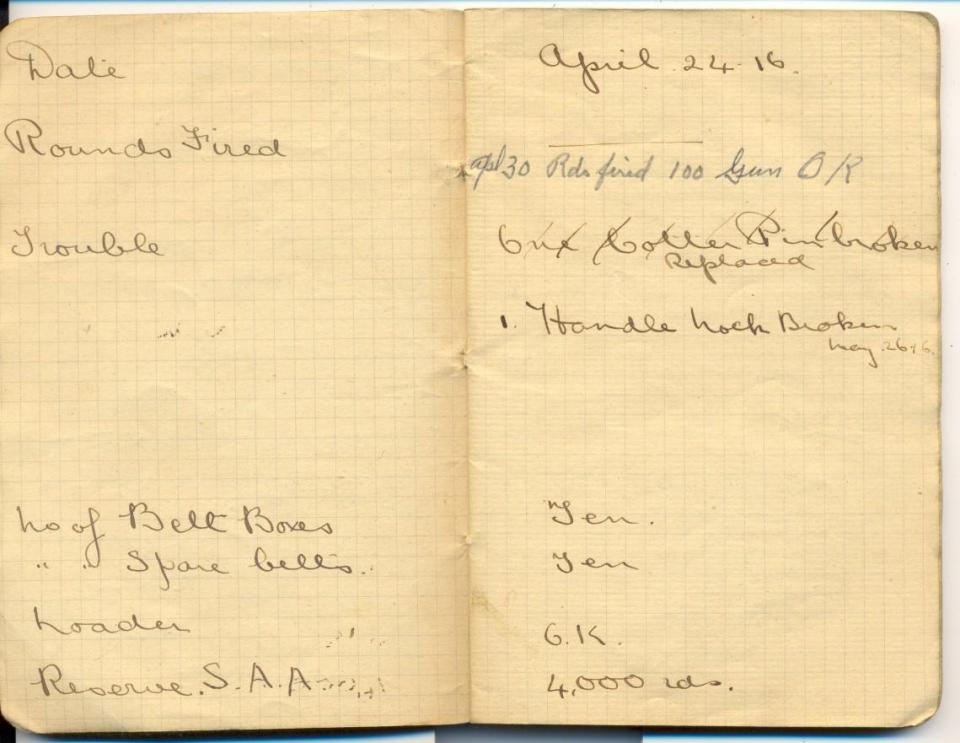 Date April 24.16.
Rounds Fired
apl 30 Rds fired 100 Gun O/K
Trouble One Cotter Pin broken
Replaced
1. Handle Lock Broken
May 26.16.
No of Belt Boxes Ten.
" " Spare belts. Ten
Loader O.K.
Reserve. S.A.A 4,000 rds.